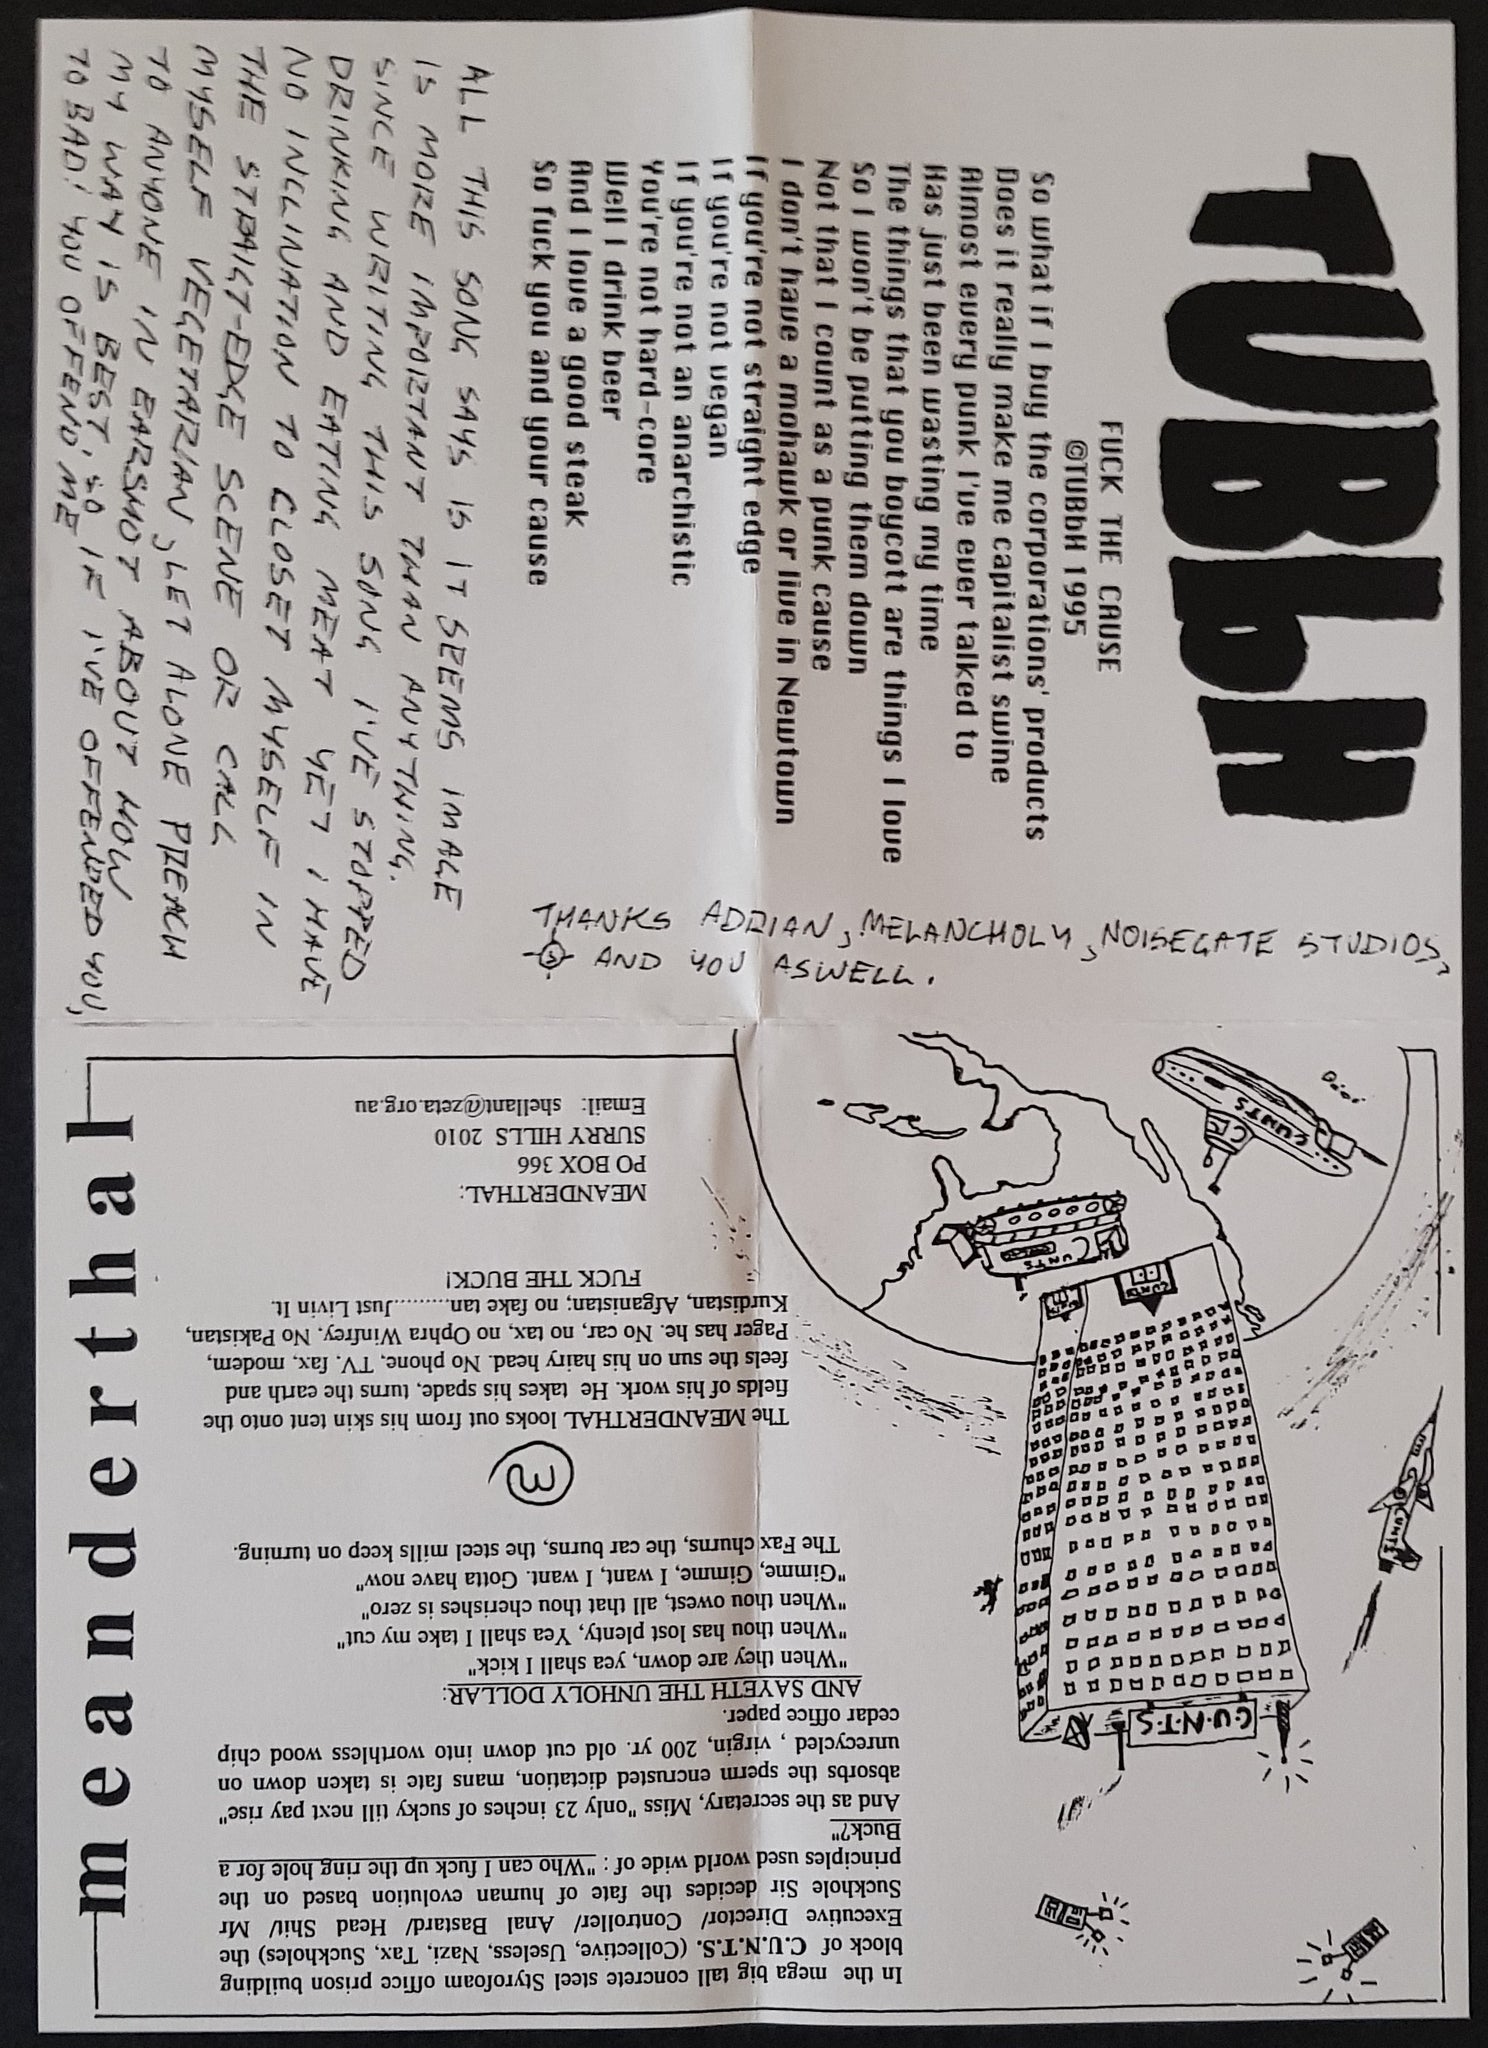 TUBbH
FUCK THE CAUSE
©TUBbH 1995
So what if I buy the corporations' products
Does it really make me capitalist swine
Almost every punk I've ever talked to
Has just been wasting my time
The things that you boycott are things I love
So I won't be putting them down
Not that I count as a punk cause
I don't have a mohawk or live in Newtown
If you're not straight edge
If you're not vegan
If you're not an anarchistic
You're not hard-core
Well I drink beer
And I love a good steak
So fuck you and your cause
ALL THIS SONG SAYS IS IT SEEMS IMAGE
IS MORE IMPORTANT THAN ANYTHING.
SINCE WRITING THIS SONG I'VE STOPPED
DRINKING AND EATING MEAT YET I HAVE
NO INCLINATION TO CLOSET MYSELF IN
THE STRAIGT-EDGE SCENE OR CALL
MYSELF VEGETARIAN, LET ALONE PREACH
TO ANYONE IN EARSHOT ABOUT HOW
MY WAY IS BEST, SO IF I'VE OFFENDED YOU,
TO BAD! YOU OFFEND ME
THANKS ADRIAN, MELANCHOLY, NOISEGATE STUDIOS,
AND YOU ASWELL.
meanderthal
In the mega big tall concrete steel Styrofoam office prison building
block of C.U.N.T.S. (Collective, Useless, Nazi, Tax, Suckholes) the
Executive Director/ Controller/ Anal Bastard/ Head Shit/ Mr
Suckhole Sir decides the fate of human evolution based on the
principles used world wide of : "Who can I fuck up the ring hole for a
Buck?"
And as the secretary, Miss "only 23 inches of sucky till next pay rise"
absorbs the sperm encrusted dictation, mans fate is taken down on
unrecycled , virgin, 200 yr. old cut down into worthless wood chip
cedar office paper.
AND SAYETH THE UNHOLY DOLLAR:
"When they are down, yea shall I kick"
"When thou has lost plenty, Yea shall I take my cut"
"When thou owest, all that thou cherishes is zero"
"Gimme, Gimme, I want, I want. Gotta have now"
The Fax churns, the car burns, the steel mills keep on turning.
The MEANDERTHAL looks out from his skin tent onto the
fields of his work. He takes his spade, turns the earth and
feels the sun on his hairy head. No phone, TV, fax, modem,
Pager has he. No car, no tax, no Ophra Winfrey. No Pakistan,
Kurdistan, Afganistan; no fake tan..........Just Livin It.
FUCK THE BUCK!
MEANDERTHAL:
PO BOX 366
SURRY HILLS 2010
Email: shellant@zeta.org.au
C.U.N.T.S
CUNTS
CUNTS
CUNTS